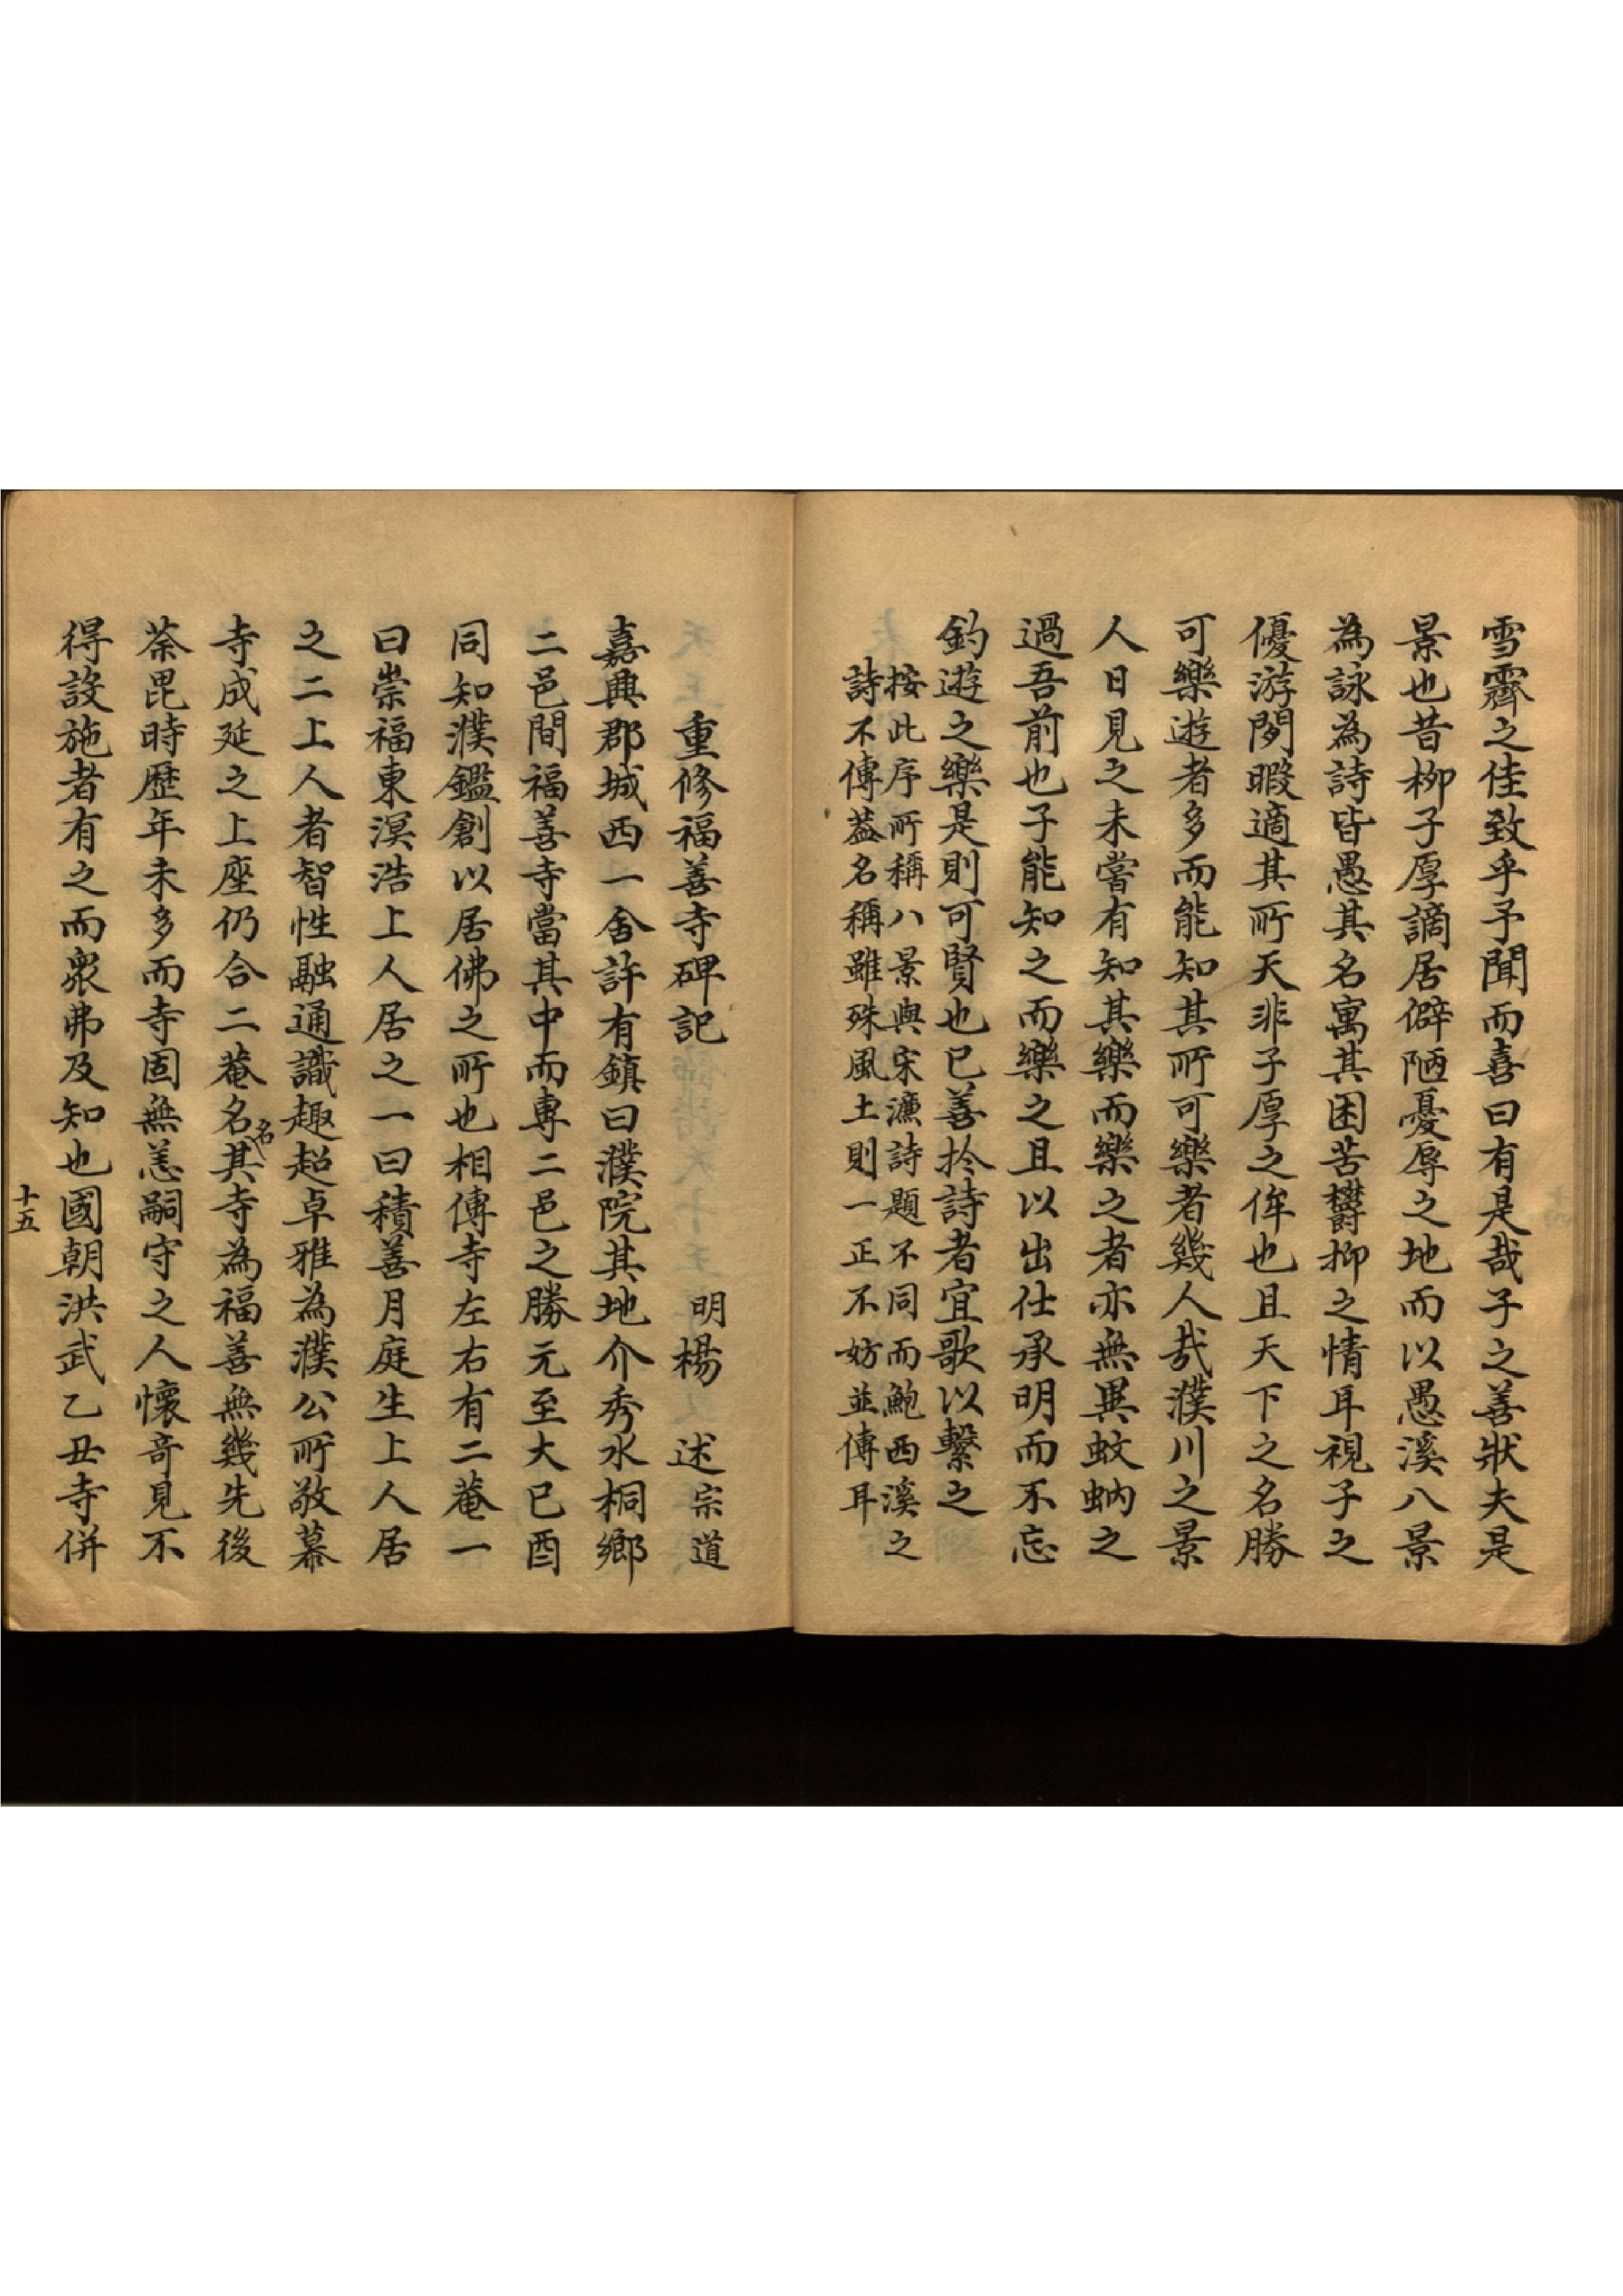 雪霽之佳致乎予聞而喜曰有是哉子之善狀夫是
景也昔栁子厚謫居僻陋憂辱之地而以愚溪八景
為詠為詩皆愚其名寓其困苦欝抑之情耳視子之
優游閒暇適其所天非子厚之侔也且天下之名勝
可樂遊者多而能知其所可樂者幾人哉濮川之景
人日見之未嘗有知其樂而樂之者亦無異蚊蚋之
過吾前也子能知之而樂之且以出仕承明而不忘
釣遊之樂是則可賢也已善扵詩者宜歌以繫之
按此序所稱八景與宋濂詩題不同而鮑西溪之
詩不傳葢名稱雖殊風土則一正不妨並傳耳
重修福善寺碑記
明楊述宗道
嘉興郡城西一舍許有鎮曰濮院其地介秀水桐鄉
二邑間福善寺當其中而專二邑之勝元至大已酉
同知濮鑑創以居佛之所也相傳寺左右有二菴一
曰崇福東溟浩上人居之一曰積善月庭生上人居
之二上人者智性融通識趣超卓雅為濮公所敬慕
寺成延之上座仍合二菴名名其寺為福善無幾先後
荼毘時歷年未多而寺固無恙嗣守之人懷竒見不
得設施者有之而衆弗及知也國朝洪武乙丑寺併
十五